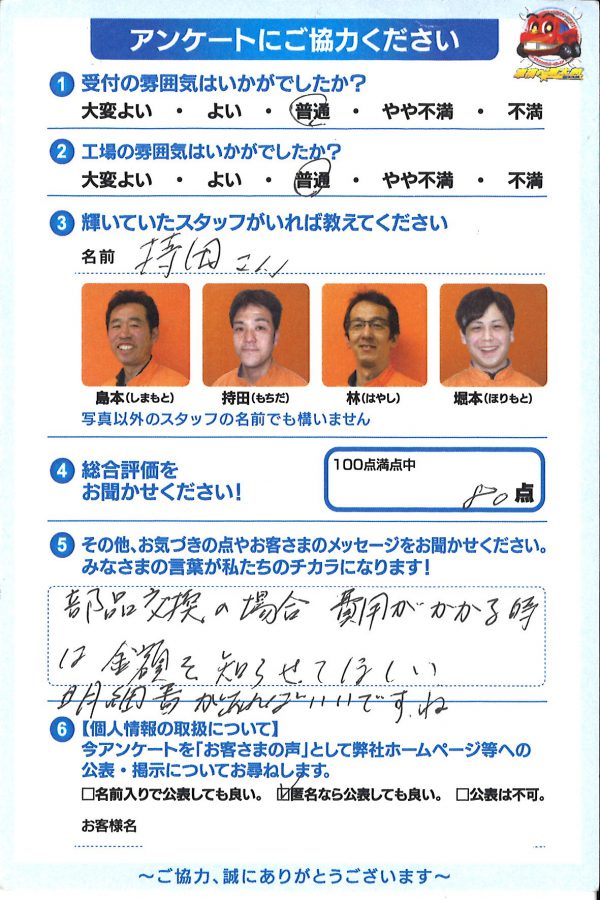 アンケートにご協力ください
1 受付の雰囲気はいかがでしたか?
大変よい ・ よい ・ 普通 ・ やや不満 ・ 不満
2 工場の雰囲気はいかがでしたか?
大変よい ・ よい ・ 普通 ・ やや不満 ・ 不満
3 輝いていたスタッフがいれば教えてください
名前 持田さん
島本(しまもと) 持田(もちだ) 林(はやし) 堀本(ほりもと)
写真以外のスタッフの名前でも構いません
4 総合評価を
お聞かせください!
100点満点中
80点
5 その他、お気づきの点やお客さまのメッセージをお聞かせください。
みなさまの言葉が私たちのチカラになります!
部品交換の場合 費用がかかる時
は 金額を知らせてほしい
明細書があればいいですね
6 【個人情報の取扱について】
今アンケートを「お客さまの声」として弊社ホームページ等への
公表・掲示についてお尋ねします。
□名前入りで公表しても良い。 ☑匿名なら公表しても良い。 □公表は不可。
お客様名
〜ご協力、誠にありがとうございます〜